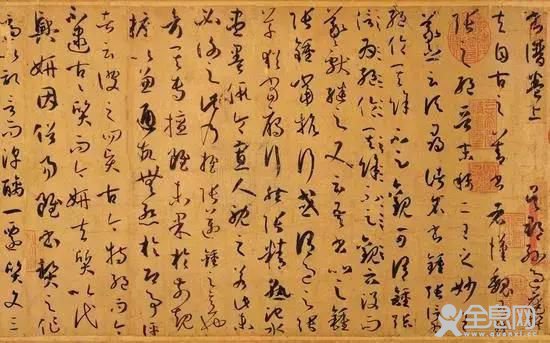 書譜卷上 吳郡孫過庭撰
夫自古之善書者漢魏有鍾
張之絕晉末稱二王之妙王
羲之云頃尋諸名書鍾張信為
絕倫其餘不足觀可謂鍾張
云沒而
羲獻繼之又云吾書比之鍾
張鍾當抗行或謂過之張
草猶當雁行然張精熟池水
盡墨假令寡人耽之若此未
必謝之此乃推張邁鍾之意也
考其專擅雖未果於前規
摭以兼通故無慚於即事評
者云彼之四賢古今特絕而今
不逮古古質而今妍夫質以代
興妍因俗易雖書契之作
適以記言而淳醨一遷質文三
全息网
www.QuanXi.cc